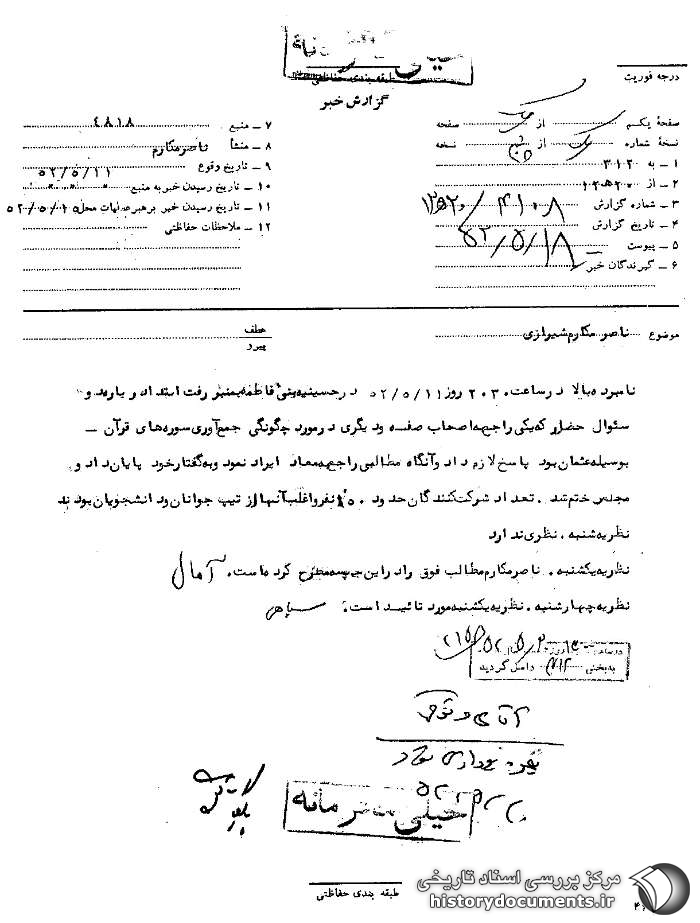 خیلی محرمانه
طبقه بندی حفاظتی
گزارش خبر
درجه فوریت
صفحهٔ یکم از صفحه
نسخهٔ شماره یک از نسخه
۱ ـ به ۳۱۲
۲ ـ از ۱۲ ه ۲۰
۳ ـ شماره گزارش ۴۱۰۸
۴ ـ تاریخ گزارش ۵۲/۵/۱۸
۵ ـ پیوست
۶ ـ گیرندگان خبر
۷ ـ منبع ۴۸۱۸
۸ ـ منشأ ناصرمکارم
۹ ـ تاریخ وقوع ۵۲/۵/۱۱
۱۰ ـ تاریخ رسیدن خبر به منبع
۱۱ ـ تاریخ رسیدن خبر برهبر عملیات محل ۵۲/۵/۱۵
۱۲ ـ ملاحظات حفاظتی
موضوع ناصر مکارم شیرازی
عطف
پیرو
نامبرده بالا در ساعت ۲۰۳۰ روز ۵۲/۵/۱۱ در حسینیه بنی فاطمه بمنبر رفت ابتدا در باره دو
سئوال حضار که یکی راجع به اصحاب صفه و دیگری در مورد چگونگی جمع آوری سوره های قرآن ـ
بوسیله عثمان بود پاسخ لازم داد و آنگاه مطالبی راجع به معاد ایراد نمود و به گفتار خود پایان داد و
مجلس ختم شد . تعداد شرکت کنندگان حدود نفر و اغلب آنها از تیپ جوانان و دانشجویان بودند
نظریه شنبه . نظری ندارد
نظریه یکشنبه . ناصر مکارم مطالب فوق را در این جلسه مطرح کرده است . آمال
نظریه چهارشنبه . نظریه یکشنبه مورد تائید است .
در ساعت روز
به بخش ۳۱۲ داخل گردید
خیلی محرمانه
طبقه بندی حفاظتی
مرکز بررسی اسناد تاریخی
historydocuments.ir